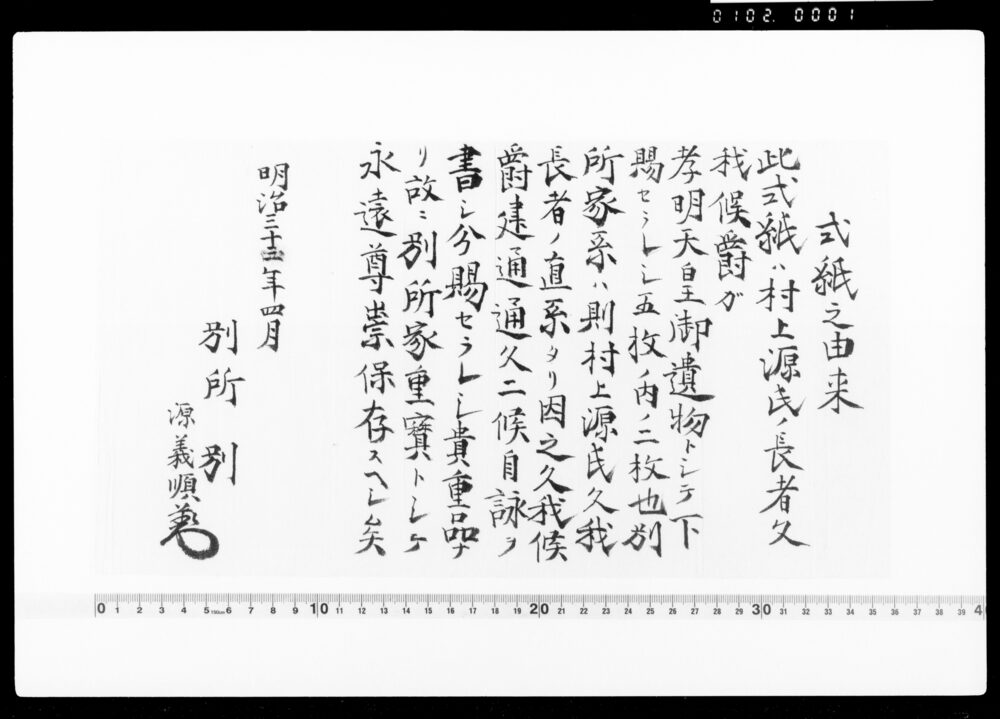 0102. 0001
式紙之由来
此式紙ハ村上源氏ノ長者久
我候爵ガ
孝明天皇御遺物トシテ下
賜セラレシ五枚ノ内ノ二枚也別
所家系ハ則村上源氏久我
長者ノ直系タリ因之久我候
爵建通通久二候自詠ヲ
書シ分賜セラレシ貴重品ナ
リ故ニ別所家重寶トシテ
永遠尊崇保存スヘシ矣
明治三十五年四月
別所 別
源義順
0 1 2 3 4 5 150cm 6 7 8 9 10 11 12 13 14 15 16 17 18 19 20 21 22 23 24 25 26 27 28 29 30 31 32 33 34 35 36 37 38 39 4